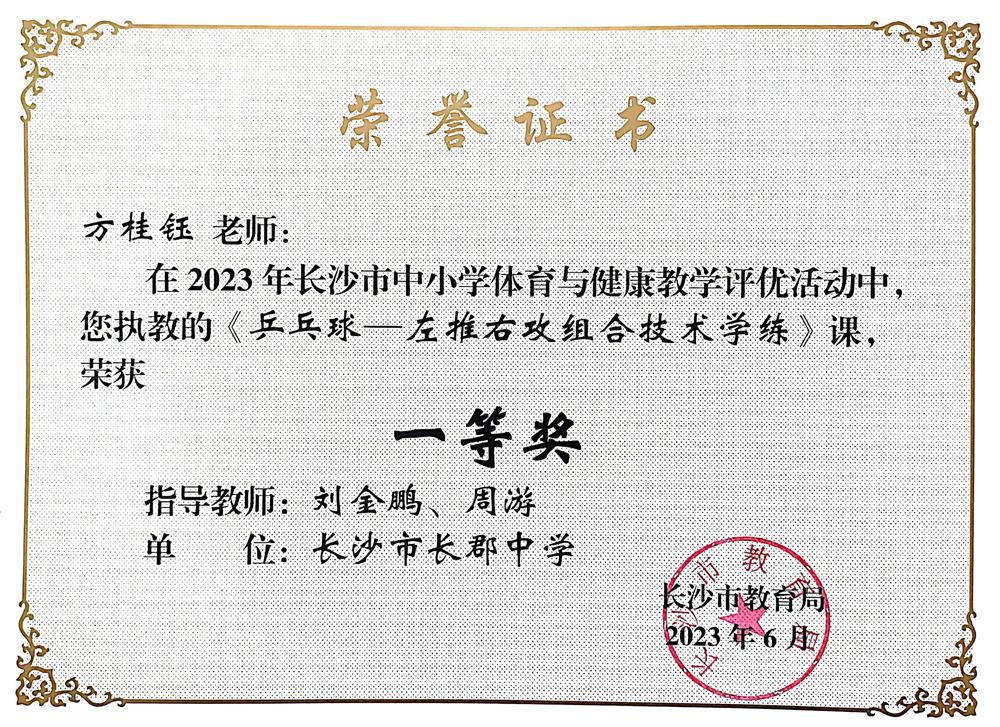 荣誉证书
方桂钰 老师：
在 2023 年长沙市中小学体育与健康教学评优活动中，
您执教的《乒乓球—左推右攻组合技术学练》课，
荣获
一等奖
指导教师：刘金鹏、周游
单　　位：长沙市长郡中学
长沙市教育局
长沙市教育局
2023 年 6 月